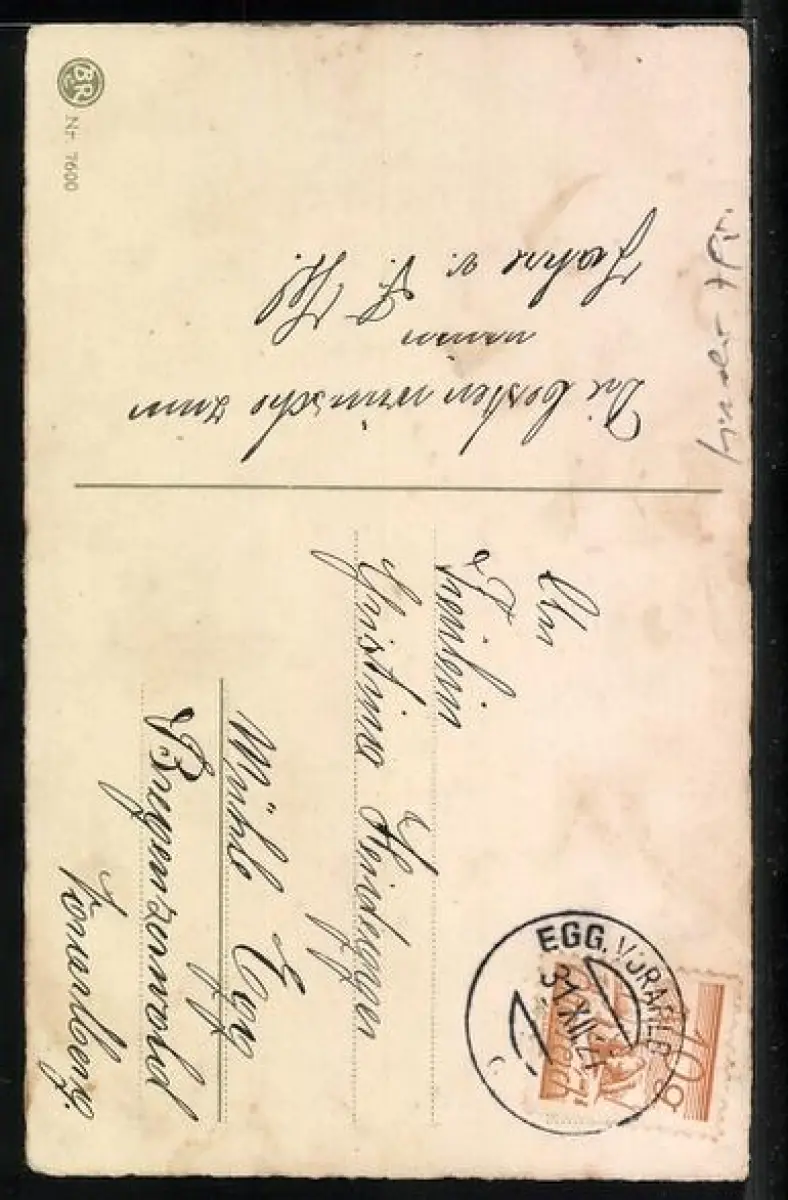 BR
Nr. 7600
Die besten wünsche zum
neuen
Jahre v.
An
Fräulein
Christina Heidegger
Mühle Egg
Bregenzerwald
Vorarlberg.
EGG, VORARLB
31.XII.27
10g